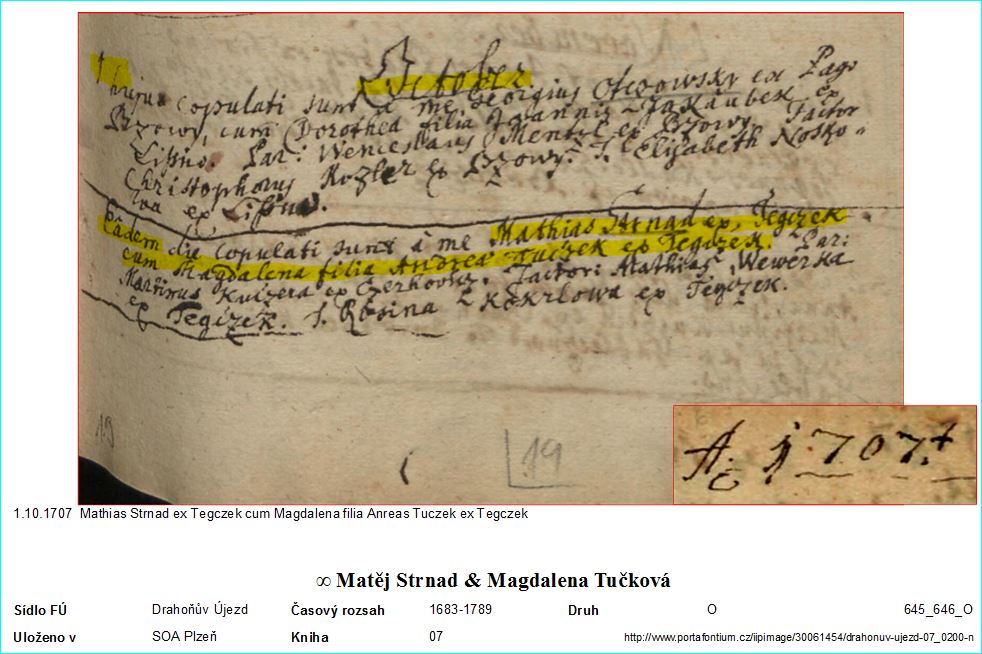 October
1 hujus copulati sunt a me Georgius ex Pago
Brzowy, cum Dorothea filia Joannis Jakaubek ex
Lissna. Par: Wenceslaus Mentzl ex Brzowy. Factor
Christophorus Kozler ex Brzowy. T. Elisabeth Nosko-
wa ex Lissna.
Eadem die copulati sunt a me Mathias Strnad ex Tegczek
cum Magdalena filia Andrea Tuczek ex Tegczek. Par:
Martinus Kuczera ex Czerhowicz. Factor: Mathias Wewerka
ex Tegczek. T. Rosina ex Tegczek.
19
19
A: 1707.
1.10.1707 Mathias Strnad ex Tegczek cum Magdalena filia Anreas Tuczek ex Tegczek
∞ Matěj Strnad & Magdalena Tučková
Sídlo FÚ Drahoňův Újezd Časový rozsah 1683-1789 Druh O 645_646_O
Uloženo v SOA Plzeň Kniha 07 http://www.portafontium.cz/iipimage/30061454/drahonuv-ujezd-07_0200-n